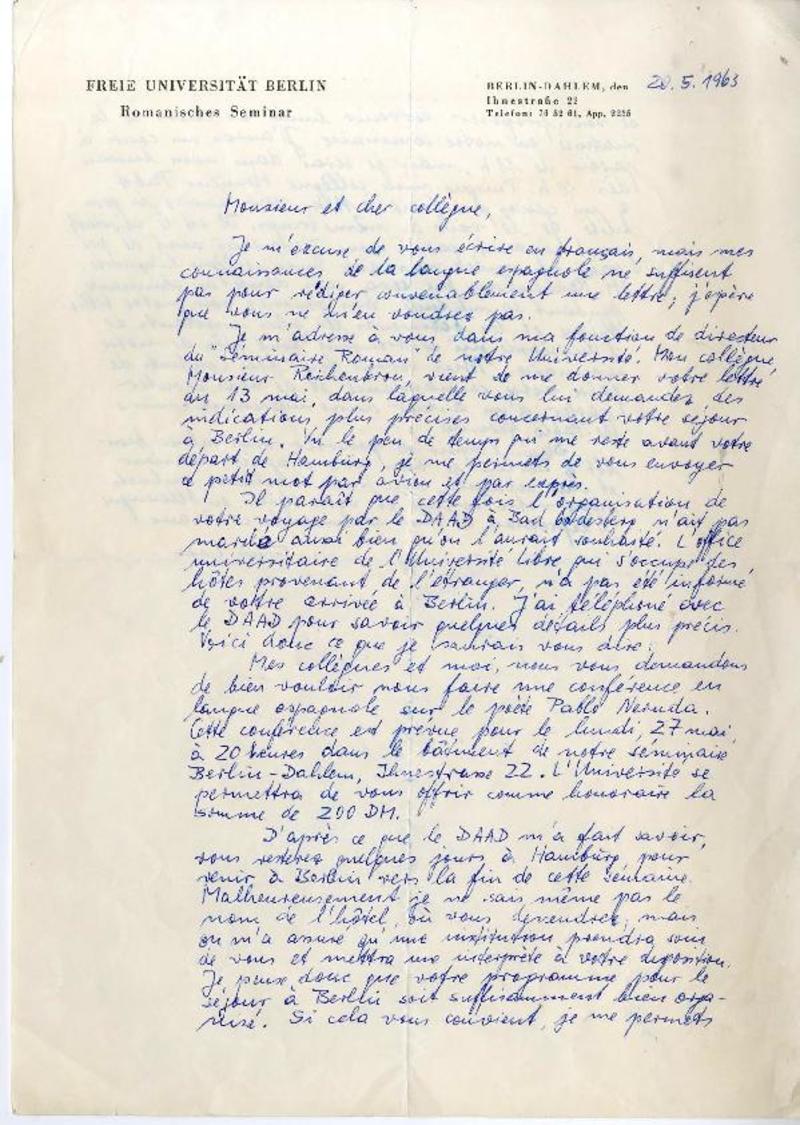 FREIE UNIVERSITÄT BERLIN
Romanisches Seminar
BERLIN-DAHLEM, den 20.5.1963
Ihnestraße 22
Telefon: 76 52 61, App. 2235
Monsieur et cher collègue,
Je m'excuse de vous écrire en français, mais mes
connaissances de la langue espagnole ne suffisent
pas pour rédiger convenablement une lettre; j'epère
que vous ne m'en voudrez pas.
Je m'adresse à vous dans ma fonction de directeur
du "Séminaire Roman" de notre Université. Mon collègue,
Monsieur Reichenkron, vient de me donner votre lettre
du 13 mai, dans laquelle vous lui demandez des
indications plus précises concernant votre séjour
à Berlin. Vu le peu de temps qui me reste avant votre
départ de Hamburg, je me permets de vous envoyer
ce petit mot par avion et par exprès.
Il paraît que cette fois l'organisation de
votre voyage par le DAAD à Bad Godesberg n'ait pas
marché aussi bien qu'on l'aurait souhaité. L'office
universitaire de l'Université Libre, qui s'occupe des
hôtes provenant de l'étranger, n'a pas été informé
de votre arrivée à Berlin. J'ai téléphoné avec
le DAAD pour savoir quelques détails plus précis.
Voici donc ce que je saurais vous dire:
Mes collègues et moi, nous vous demandons
de bien vouloir nous faire une conférence en
langue espagnole sur le poète Pablo Neruda.
Cette conférence est prévue pour le lundi, 27 mai,
à 20 heures dans le bâtiment de notre séminaire
Berlin-Dahlem, Ihnestrasse 22. L'Université se
permettra de vous offrir comme honoraire la
somme de 200 DM.
D'après ce que le DAAD m'a fait savoir,
vous resterez quelques jours à Hamburg pour
venir à Berlin vers la fin de cette semaine.
Malheureusement je ne sais même pas le
nom de l'hôtel, où vous descendrez, mais
on m'a assuré qu'une institution prendra soin
de vous et mettra une interprète à votre disposition.
Je pense donc que votre programme pour le
séjour à Berlin soit suffisamment bien orga-
nisé. Si cela vous convient, je me permets